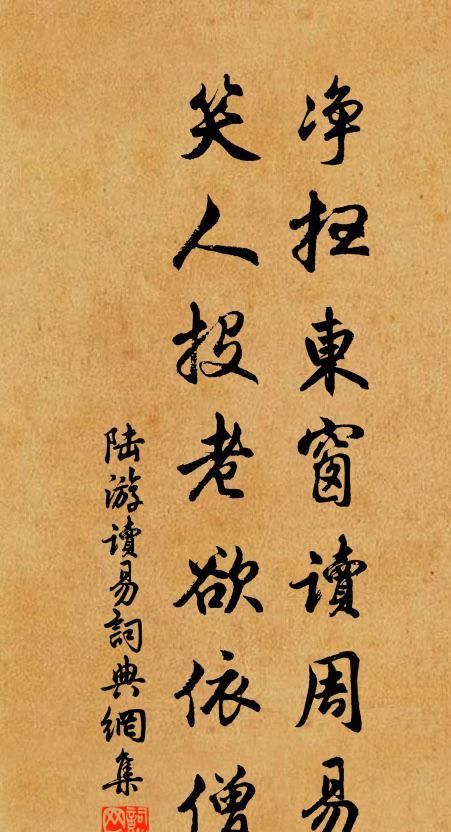 净扫東窗讀周易
笑人投老欲依僧
陆游讀易詞典網集